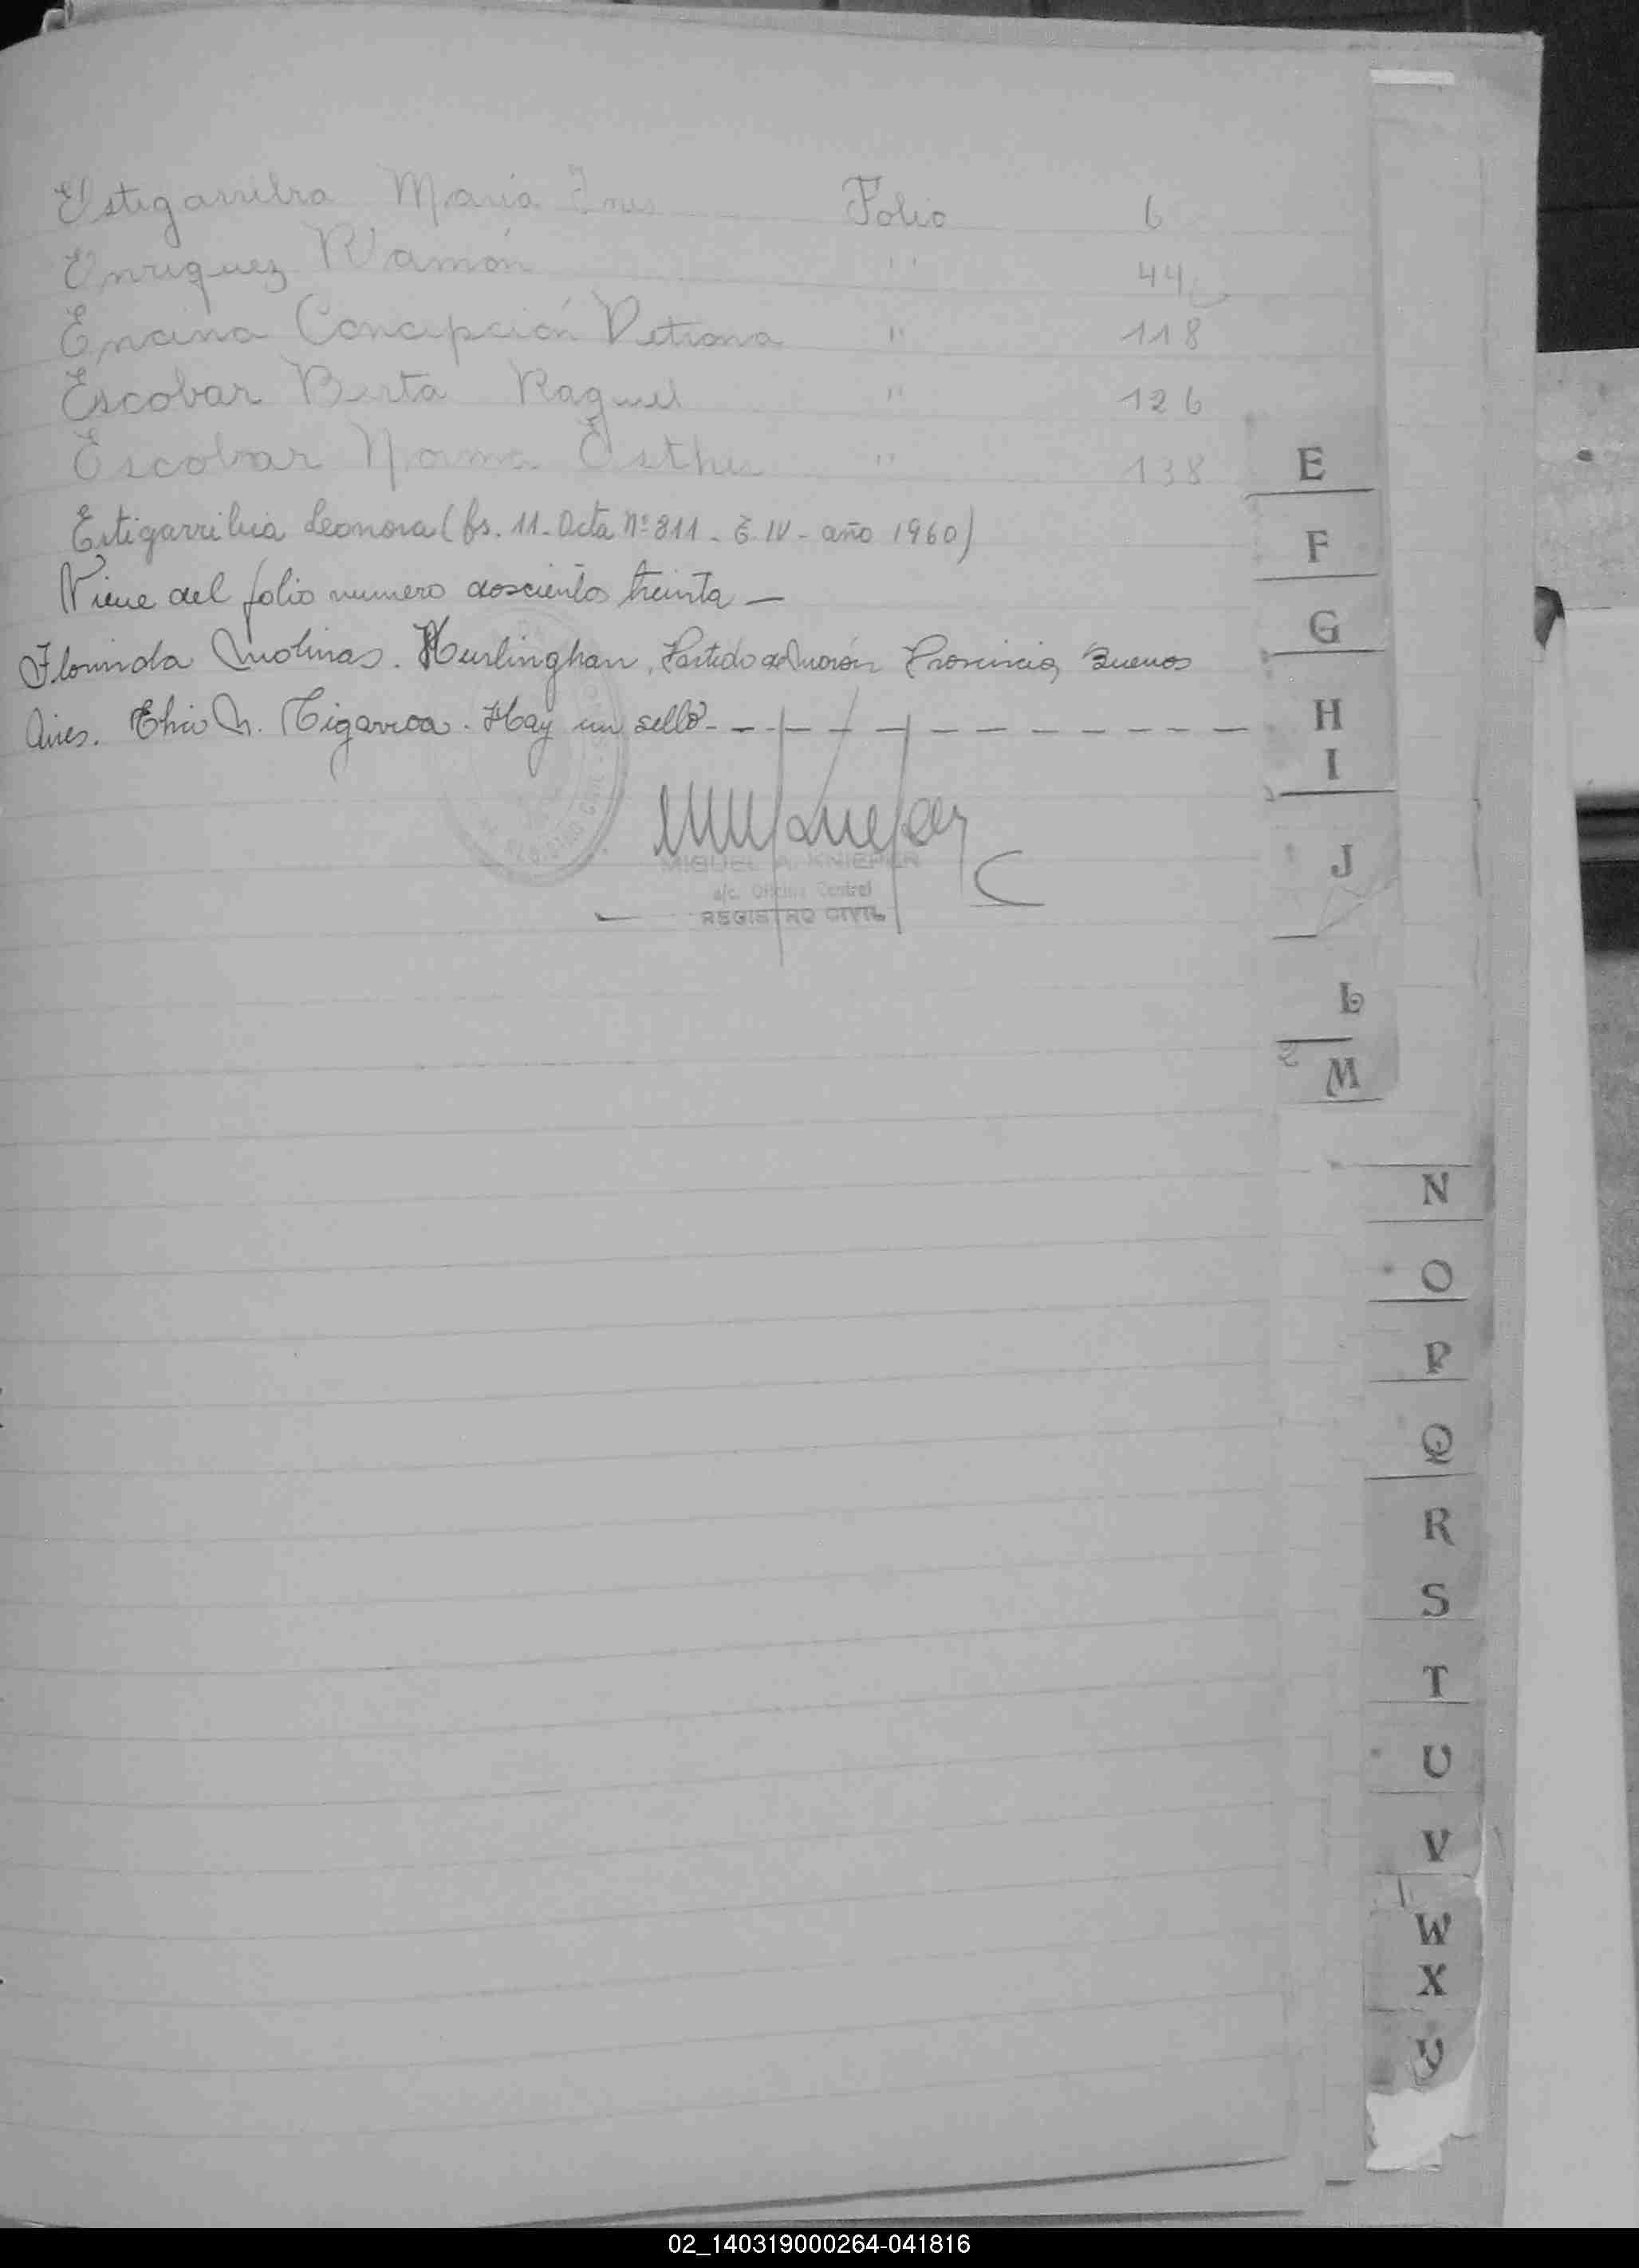 Estigarribia María Ines Folio 6
Enriquez Ramón " 44
Encina Concepción Petrona " 118
Escobar Berta Raquel " 126
Escobar Norma Esther " 138
Estigarribia Leonora (fs. 11. Acta Nº 811 - T. IV - año 1960)
Viene del folio numero doscientos treinta —
Florinda Molinas. Hurlinghan, Partido de Morón Provincia Buenos
Aires. M. Hay un sello - - - - - - - - - -
MIGUEL A. KNIEPER
a/c. Oficina Central
REGISTRO CIVIL
E
F
G
H
I
J
L
M
N
O
P
Q
R
S
T
U
V
W
X
Y
02_140319000264-041816